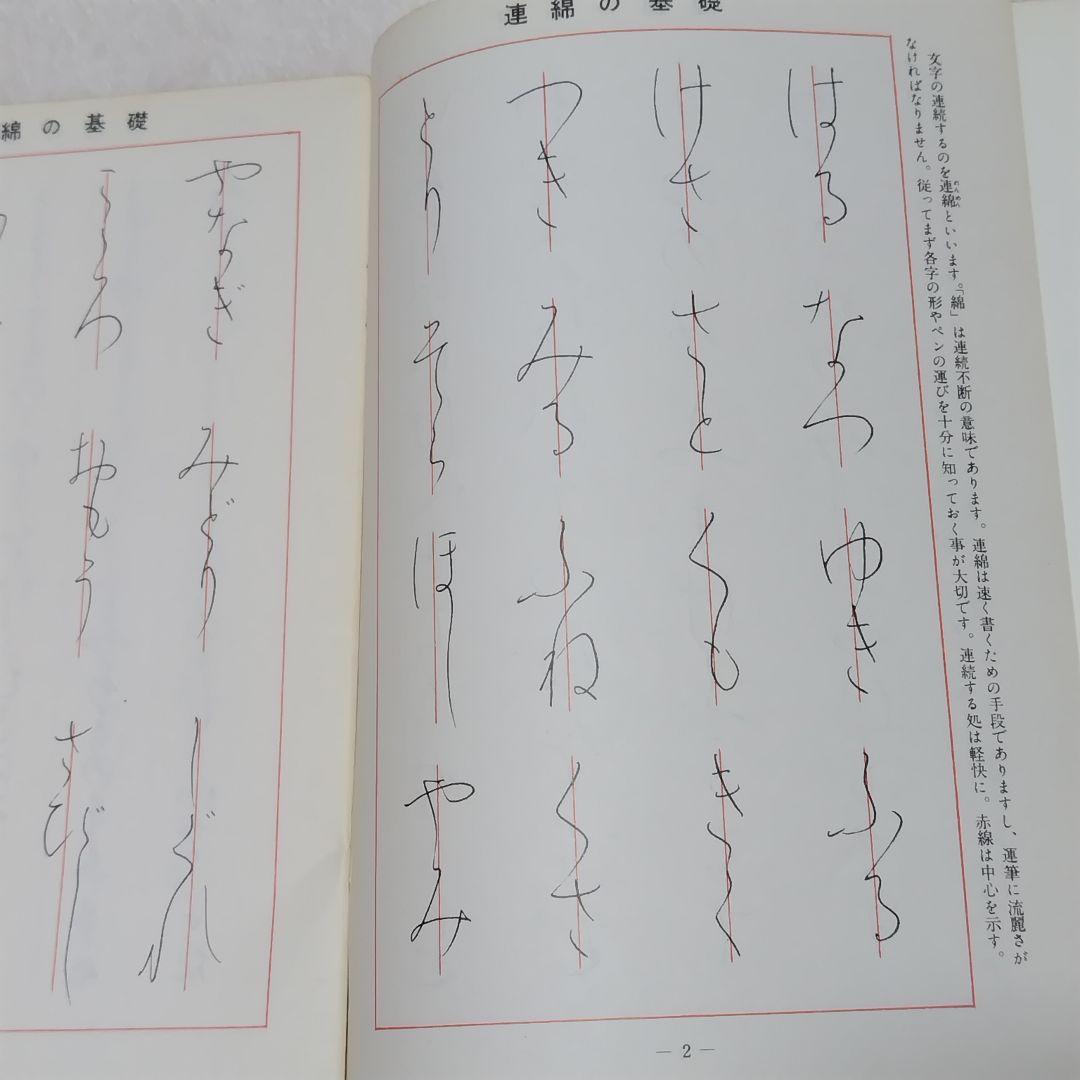 連綿の基礎
文字の連続するのを連綿といいます。「綿」は連続不断の意味であります。連綿は速く書くための手段でありますし、運筆に流麗さが
なければなりません。従ってまず各字の形やペンの運びを十分に知っておく事が大切です。連続する処は軽快に。赤線は中心を示す。
れんめん
はる
なつ
ゆき
ふる
けさ
さと
くも
きく
つき
みる
ふね
くさ
とり
そら
ほし
やみ
— 2 —
綿の基礎
やなぎ
みどり
しぐれ
こころ
おもう
さびし